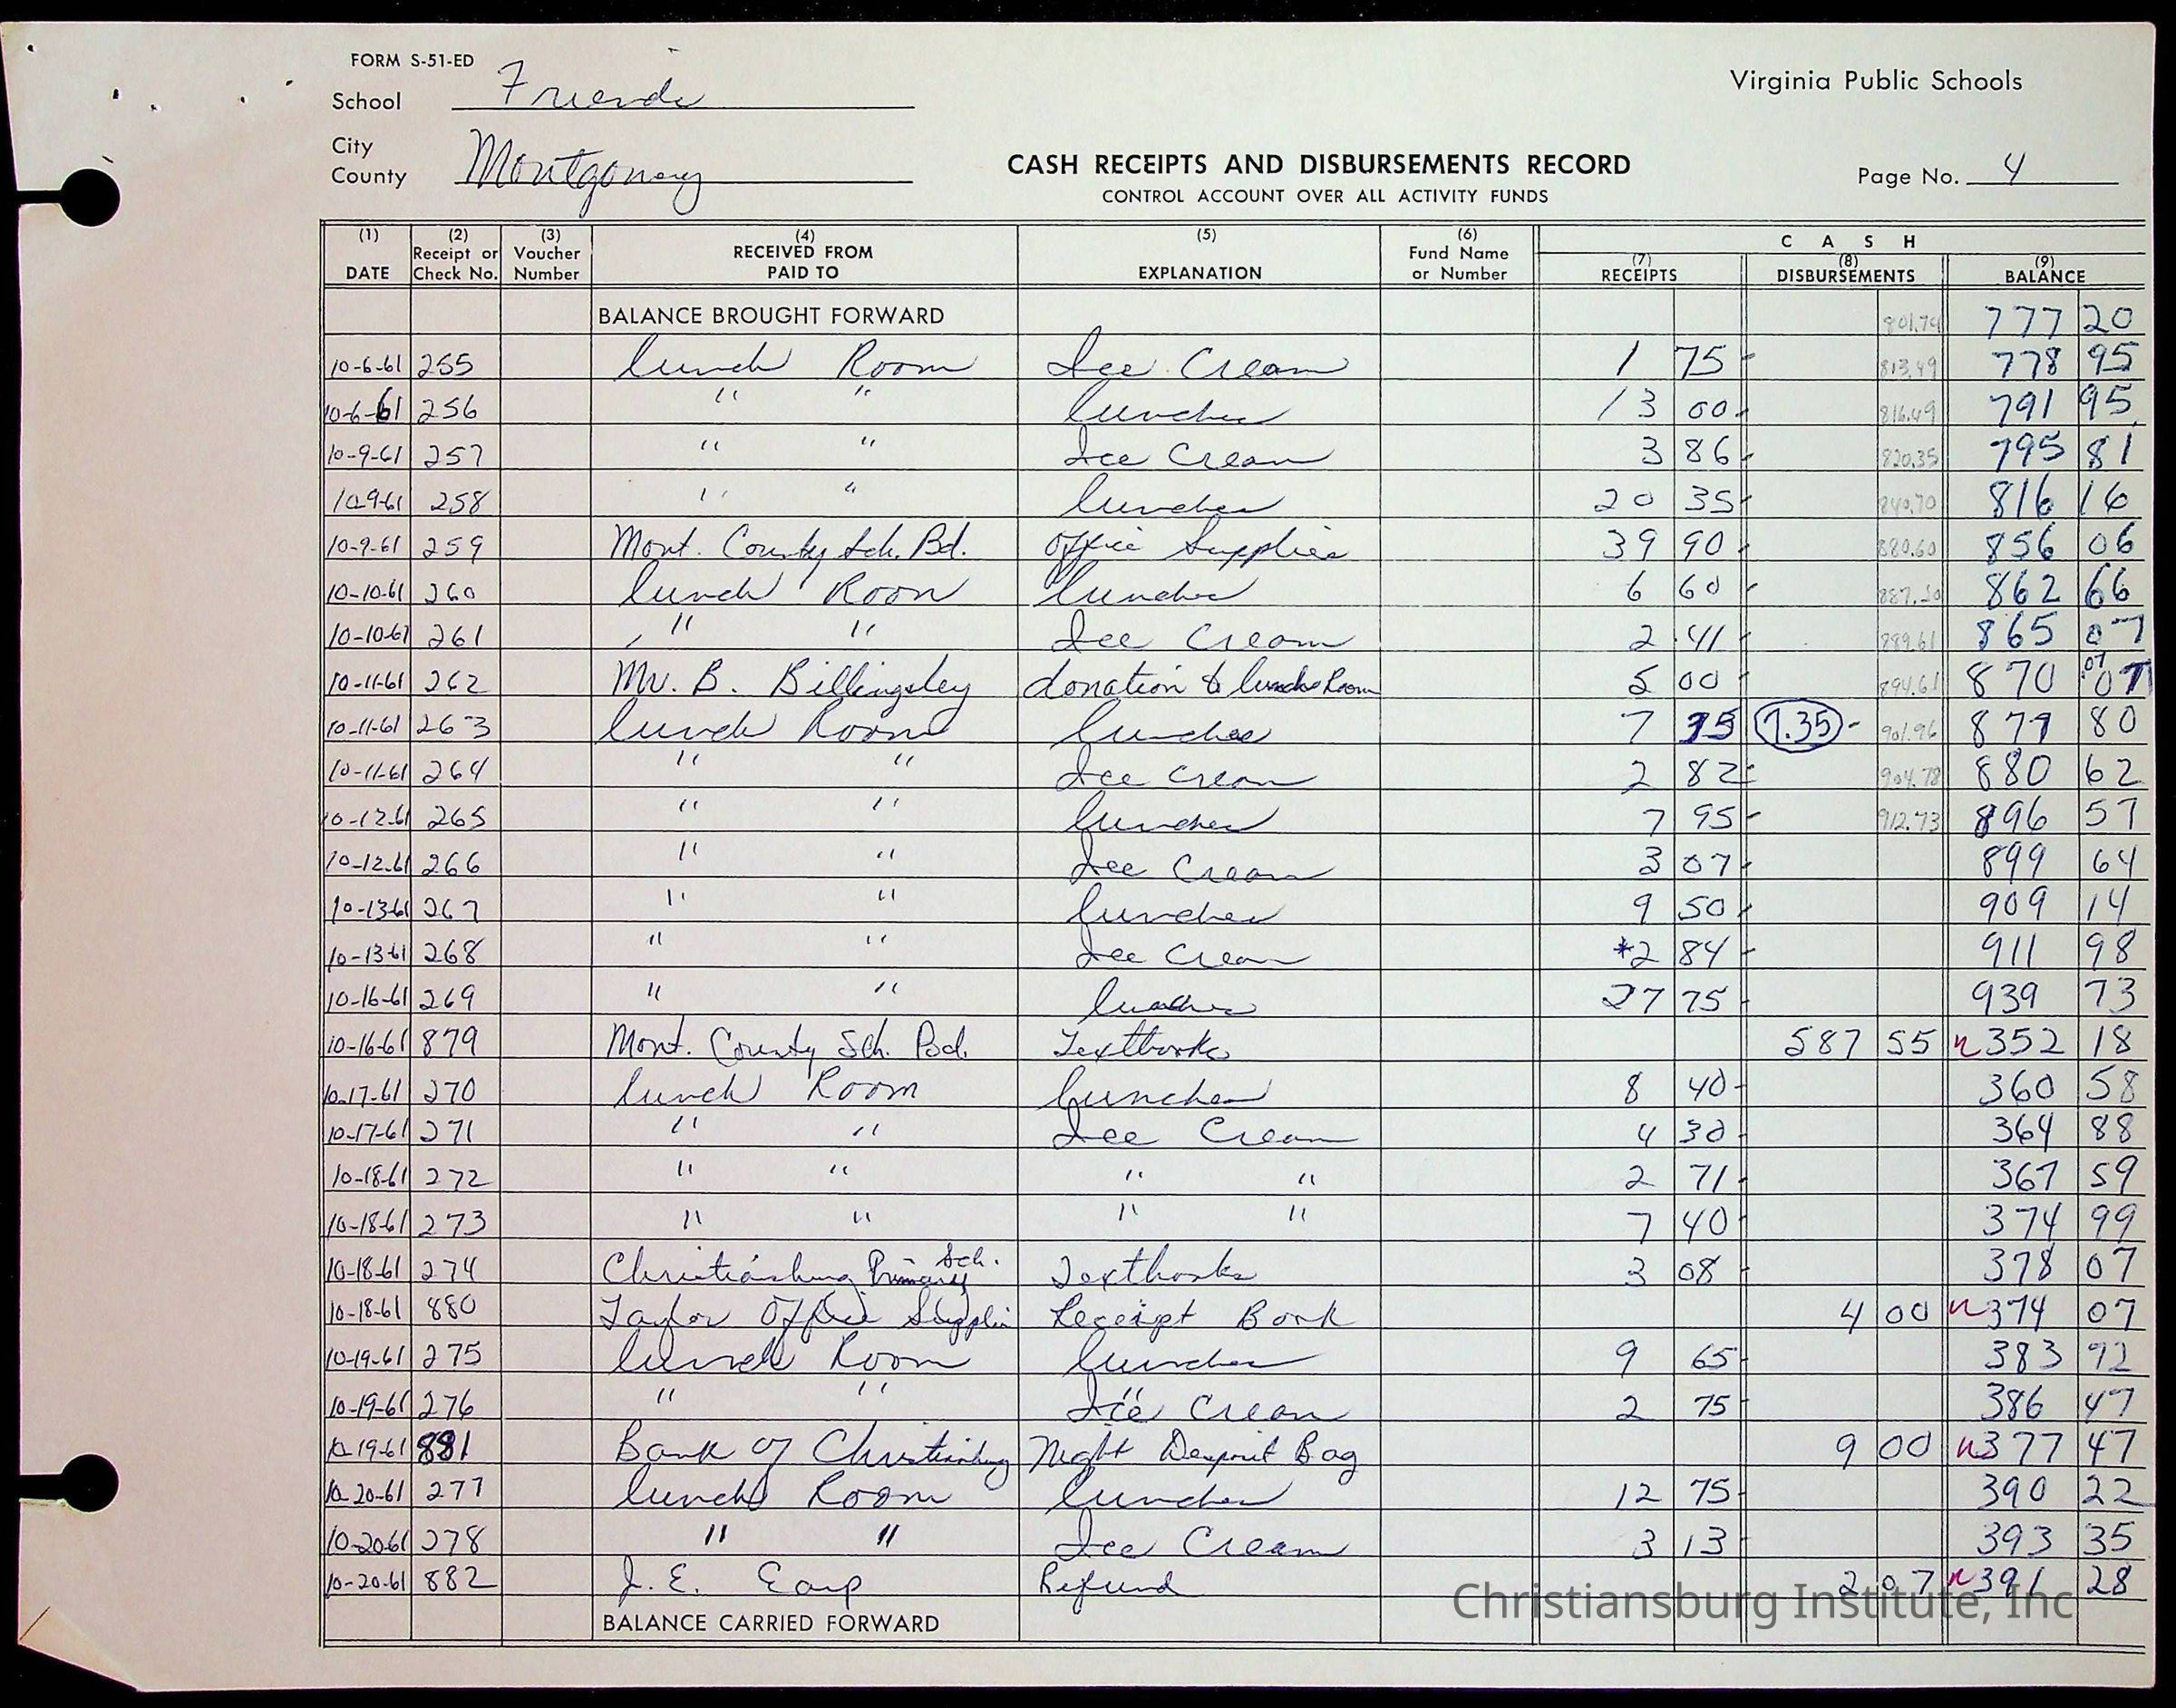 FORM S-51-ED
School Friends
Virginia Public Schools
City
County Montgomery
CASH RECEIPTS AND DISBURSEMENTS RECORD
CONTROL ACCOUNT OVER ALL ACTIVITY FUNDS
Page No. 4
(1) DATE (2) Receipt or Check No. (3) Voucher Number (4) RECEIVED FROM PAID TO (5) EXPLANATION (6) Fund Name or Number CASH (7) RECEIPTS (8) DISBURSEMENTS (9) BALANCE
BALANCE BROUGHT FORWARD 801.74 777 20
10-6-61 255 Lunch Room Ice Cream 1 75 813.49 778 95
10-6-61 256 " " Lunches 13 00 816.49 791 95
10-9-61 257 " " Ice Cream 3 86 820.35 795 81
10-9-61 258 " " Lunches 20 35 840.70 816 16
10-9-61 259 Mont. County Sch. Bd. Office Supplies 39 90 880.60 856 06
10-10-61 260 Lunch Room Lunches 6 60 887.20 862 66
10-10-61 261 " " Ice Cream 2 41 889.61 865 07
10-11-61 262 Mr. B. Billingsley donation to lunch Room 5 00 894.61 870 07 07
10-11-61 263 Lunch Room Lunches 7 35 7.35 901.96 877 80
10-11-61 264 " " Ice Cream 2 82 904.78 880 62
10-12-61 265 " " Lunches 7 95 912.73 896 57
10-12-61 266 " " Ice Cream 3 07 899 64
10-13-61 267 " " Lunches 9 50 909 14
10-13-61 268 " " Ice Cream *2 84 911 98
10-16-61 269 " " Lunches 27 75 939 73
10-16-61 879 Mont. County Sch. Bd. Textbooks 587 55 352 18
10-17-61 270 Lunch Room Lunches 8 40 360 58
10-17-61 271 " " Ice Cream 4 30 364 88
10-18-61 272 " " " " 2 71 367 59
10-18-61 273 " " " " 7 40 374 99
10-18-61 274 Christiansburg Primary Sch. Textbooks 3 08 378 07
10-18-61 880 Taylor Office Supplie Receipt Book 4 00 374 07
10-19-61 275 Lunch Room Lunches 9 65 383 72
10-19-61 276 " " Ice Cream 2 75 386 47
10-19-61 881 Bank of Christiansburg Night Deposit Bag 9 00 377 47
10-20-61 277 Lunch Room Lunches 12 75 390 22
10-20-61 278 " " Ice Cream 3 13 393 35
10-20-61 882 J. E. Earp Refund 2 07 391 28
BALANCE CARRIED FORWARD
Christiansburg Institute, Inc